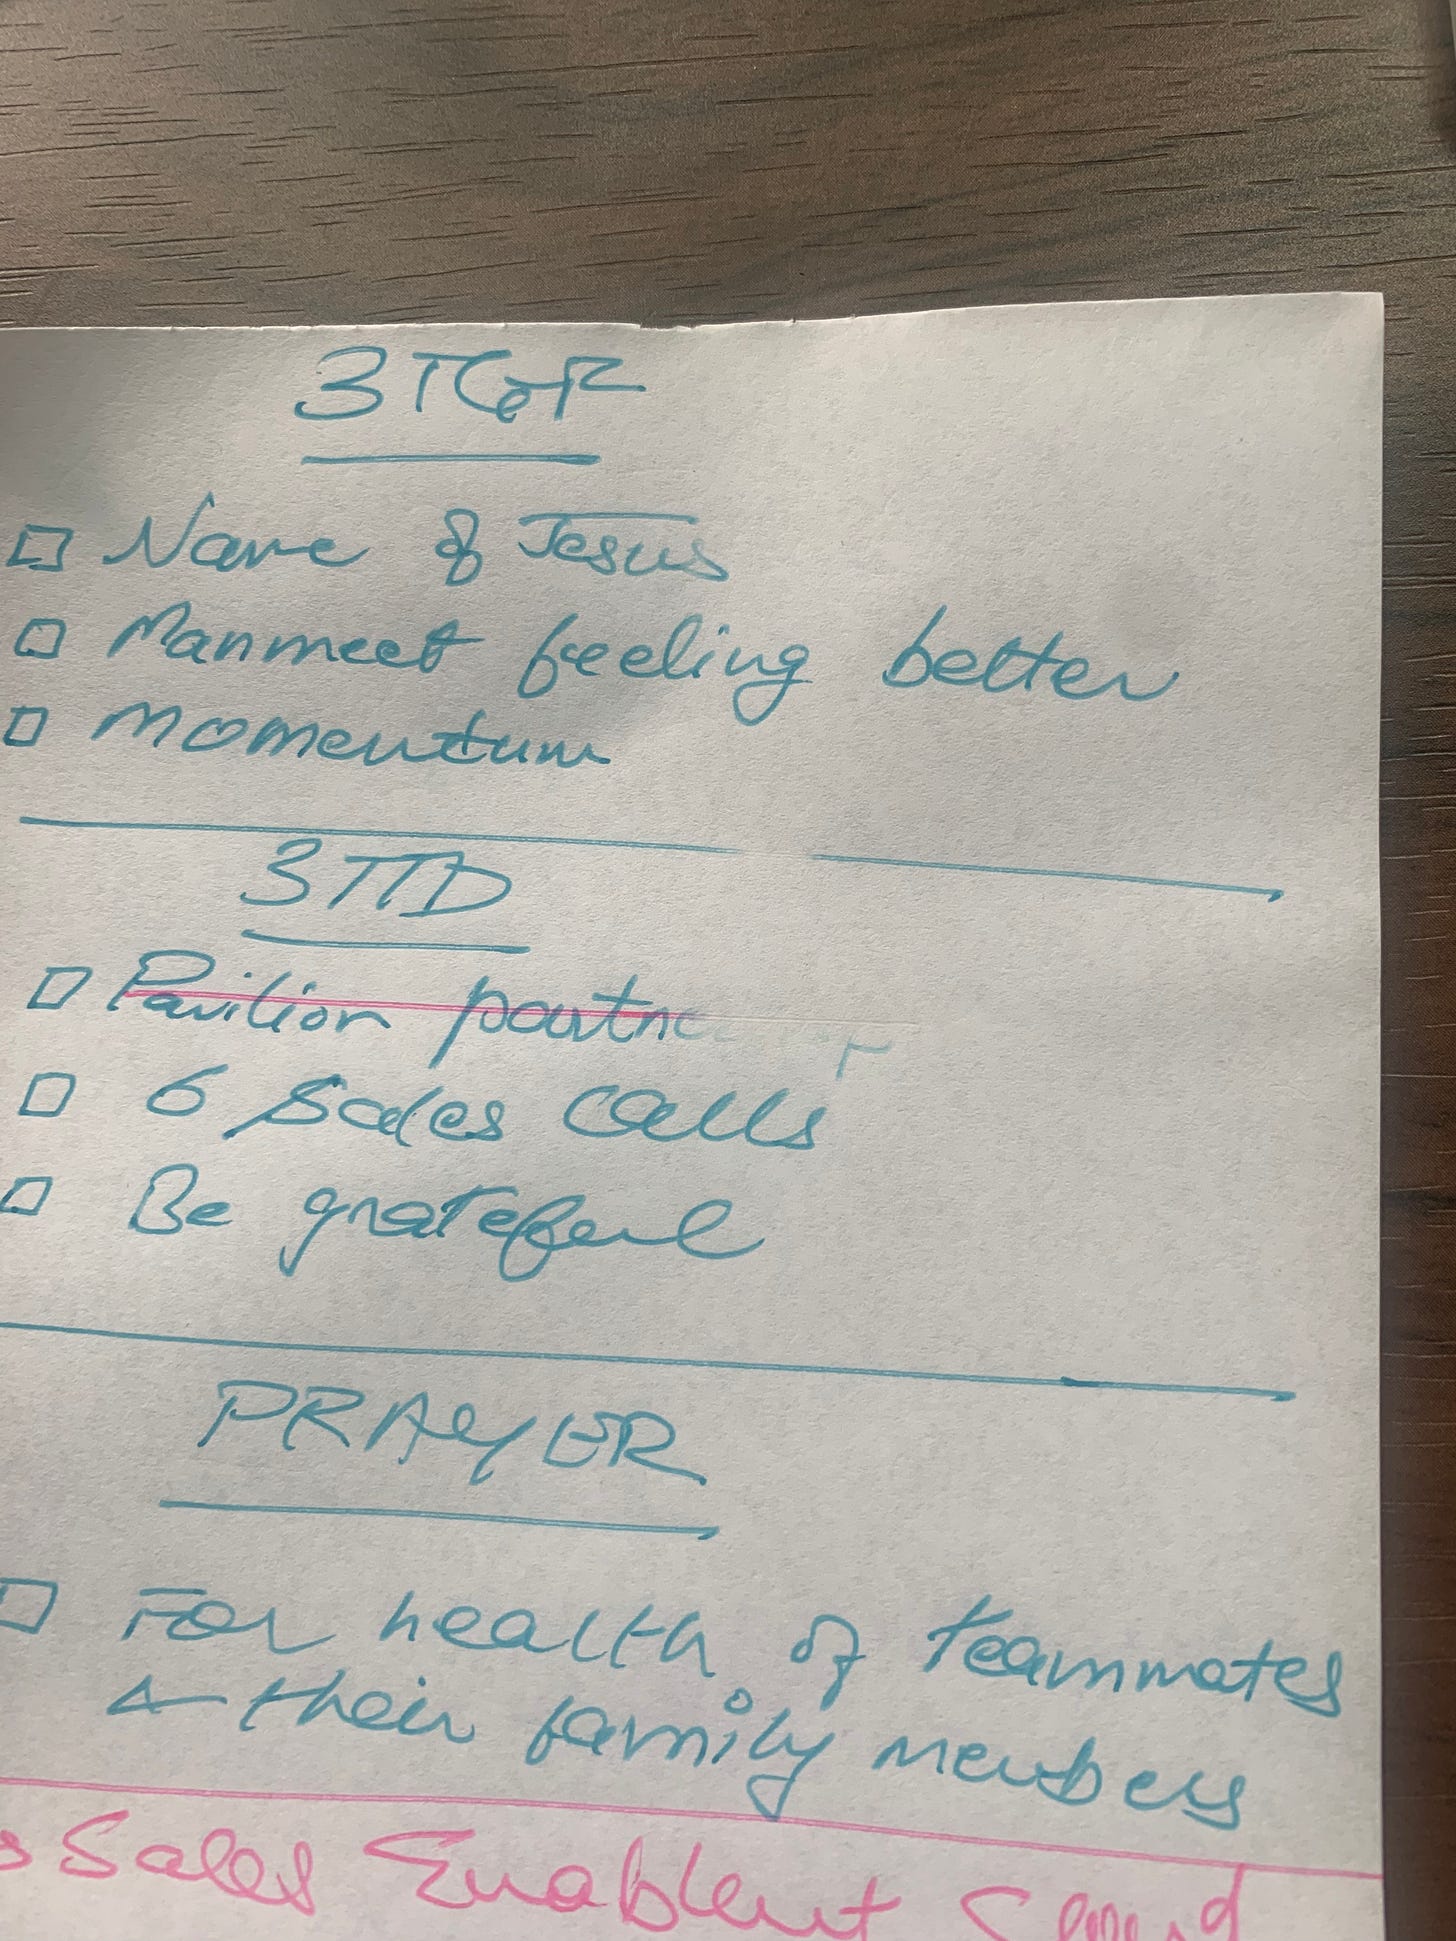 3TGF
Name of Jesus
Manmeet feeling better
Momentum
3TTD
Pavilion
6 Sales calls
Be grateful
PRAYER
For health of teammates
& their family members
Sales Enablent